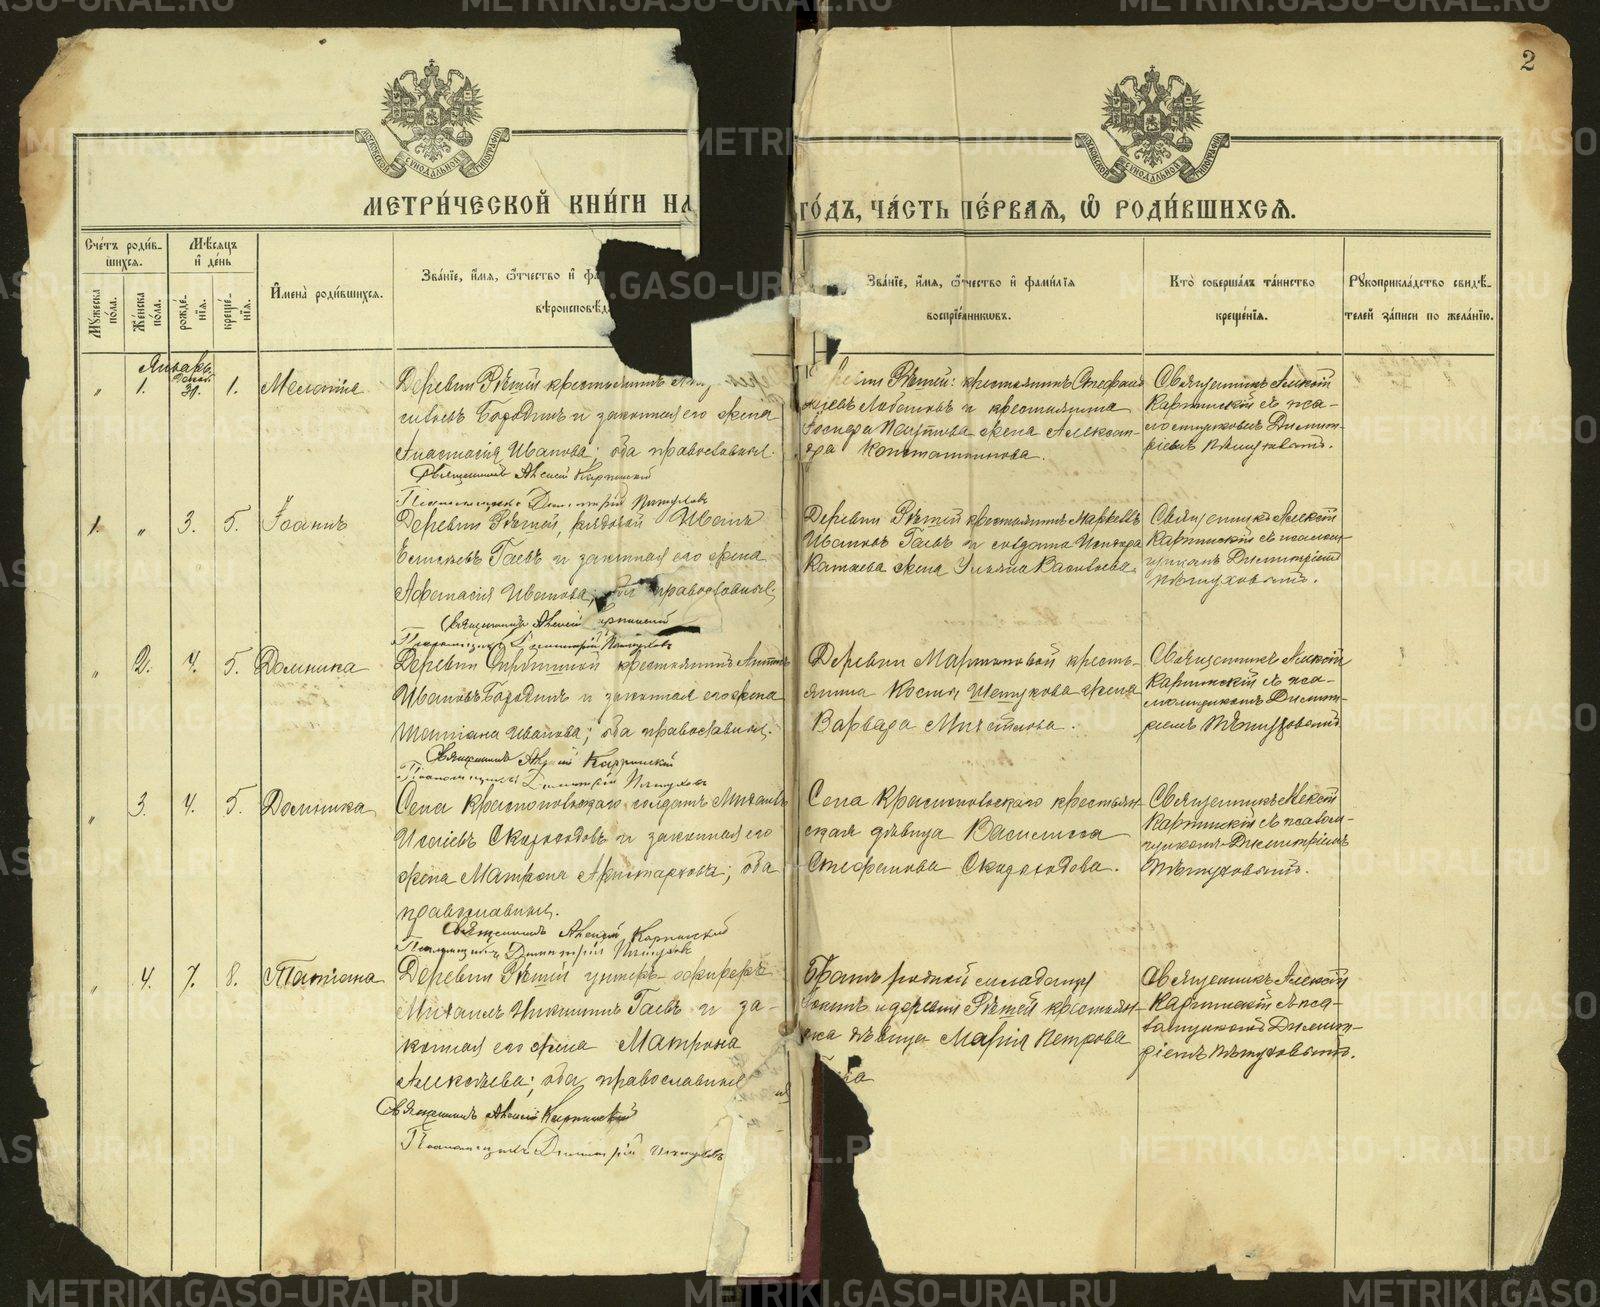 2
МОСКОВСКОЙ СѴНОДАЛЬНОЙ ТИПОГРАФІИ
МОСКОВСКОЙ СѴНОДАЛЬНОЙ ТИПОГРАФІИ
МЕТРИ́ЧЕСКОЙ КНИ́ГИ НА
ГО́ДЪ, ЧА́СТЬ ПЕ́РВАЯ, Ѽ РОДИ́ВШИХСЯ.
Сче́тъ роди́в-
шихся.
Мѣ́сяцъ
и҆ де́нь
Му́жеска
по́ла.
Же́нска
по́ла.
рожде́-
нїя.
креще́-
нїя.
И҆мена̀ роди́вшихся.
Зва́нїе, и҆́мя, ѻ҆́тчество и҆ фа
вѣроисповѣд
Зва́нїе, и҆́мя, ѻ҆́тчество и҆ фами́лїя
воспрїе́мникωвъ.
Кто̀ соверша́лъ та́инство
креще́нїя.
Рꙋкоприкла́дство свидѣ́-
телей за́писи по жела́нїю.
Январь
„ 1. Декаб. 31. 1. Меланія
Деревни Рѣтей крестьянинъ
Бородинъ и законная его жена
Анастасія Иванова; оба православные.
Священникъ Алексій Карпинскій
Псаломщикъ Димитрій Пѣтуховъ
Рѣтей: крестьянинъ Стефанъ
Лобановъ и крестьянина
жена Алексан-
дра Константинова.
Священникъ Алексій
Карпинскій съ пса-
ломщикомъ Димит-
ріемъ Пѣтуховымъ.
1. „ 3. 5. Іоаннъ
Деревни Рѣтей, рядовой Иванъ
Елисѣевъ Гаевъ и законная его жена
Афанасія Иванова; оба православные.
Священникъ Алексій Карпинскій
Псаломщикъ Димитрій Пѣтуховъ
Деревни Рѣтей крестьянинъ Маркеллъ
Ивановъ Гаевъ и солдата
Катаева жена Ульяна Васильева.
Священникъ Алексій
Карпинскій съ псалом-
щикомъ Димитріемъ
Пѣтуховымъ.
„ 2. 4. 5. Домника
Деревни крестьянинъ
Ивановъ Бородинъ и законная его жена
Татіана Иванова; оба православные.
Священникъ Алексій Карпинскій
Псаломщикъ Димитрій Пѣтуховъ
Деревни Мартыновой кресть-
янина Косьмы Шетукова жена
Варвара
Священникъ Алексій
Карпинскій съ пса-
ломщикомъ Димит-
ріемъ Пѣтуховымъ.
„ 3. 4. 5. Домника
Села солдатъ Михаилъ
Исаевъ Скороходовъ и законная его
жена Матрона Аристархова; оба
православные.
Священникъ Алексій Карпинскій
Псаломщикъ Димитрій Пѣтуховъ
Села крестьян-
ская дѣвица Василисса
Стефанова Скороходова.
Священникъ Алексій
Карпинскій съ псалом-
щикомъ Димитріемъ
Пѣтуховымъ.
„ 4. 7. 8. Татіана
Деревни Рѣтей унтеръ-офицеръ
Михаилъ Никитинъ Гаевъ и за-
конная его жена Матрона
Алексѣева; оба православные
Священникъ Алексій Карпинскій
Псаломщикъ Димитрій Пѣтуховъ
Братъ родной младенца
и деревни Рѣтей крестьян-
ска дѣвица Марія Петрова
Священникъ Алексій
Карпинскій съ пса-
ломщикомъ Димит-
ріемъ Пѣтуховымъ.
METRIKI.GASO-URAL.RU